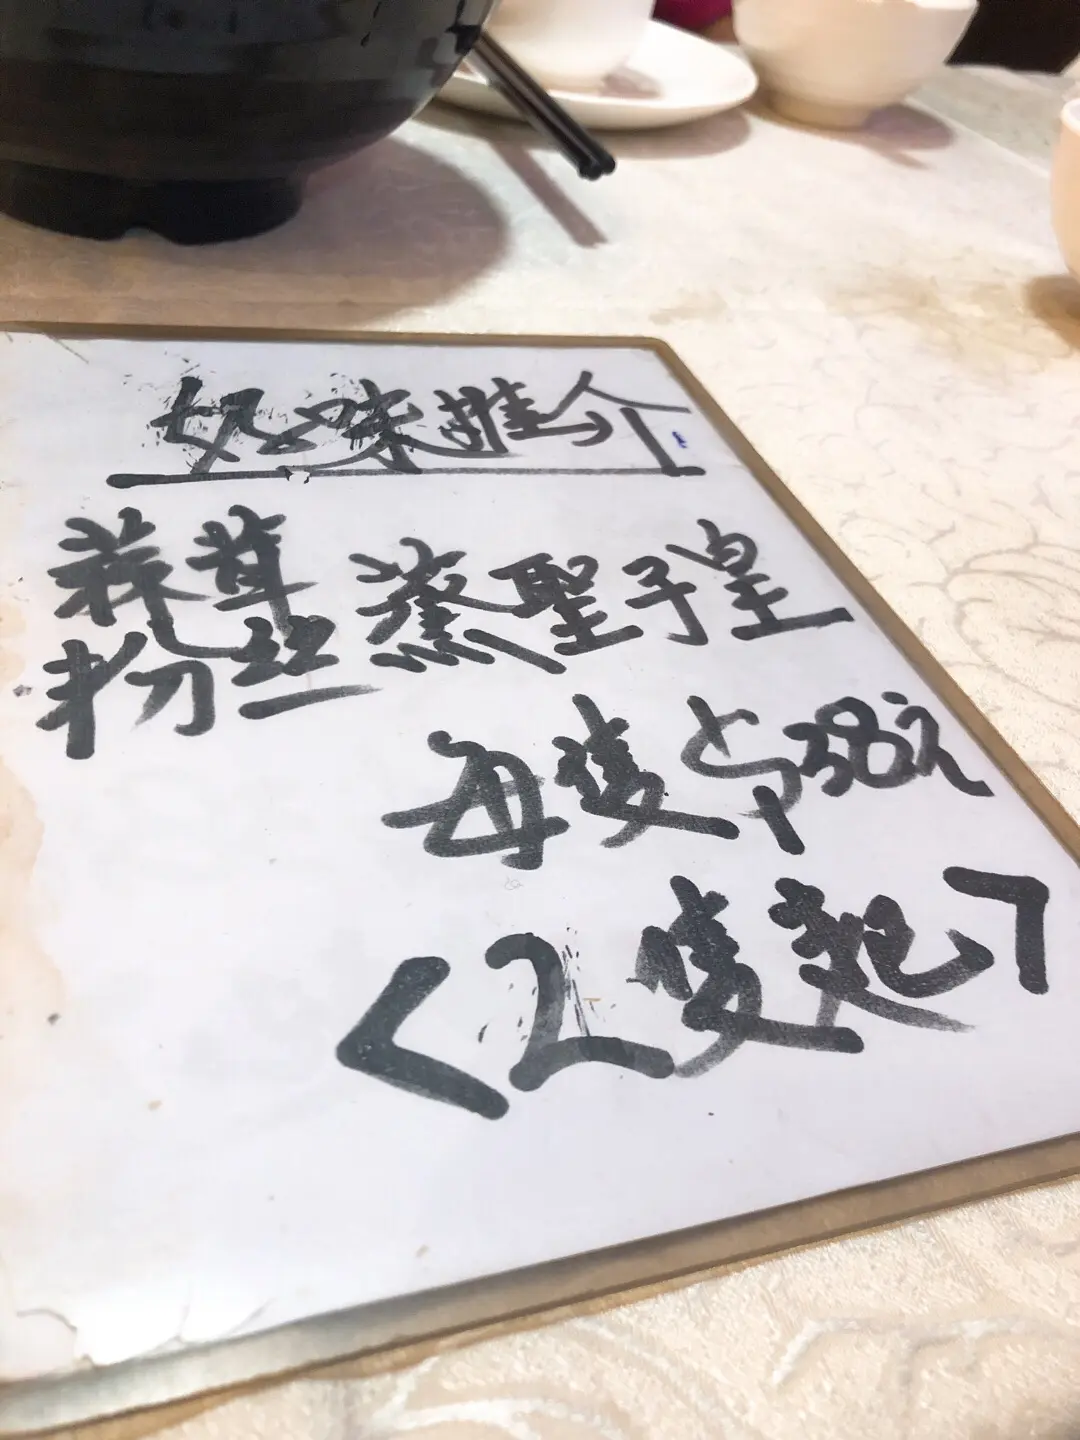 好味推介
蒜茸
粉丝
蒸聖子皇
每隻38元
<2隻起>